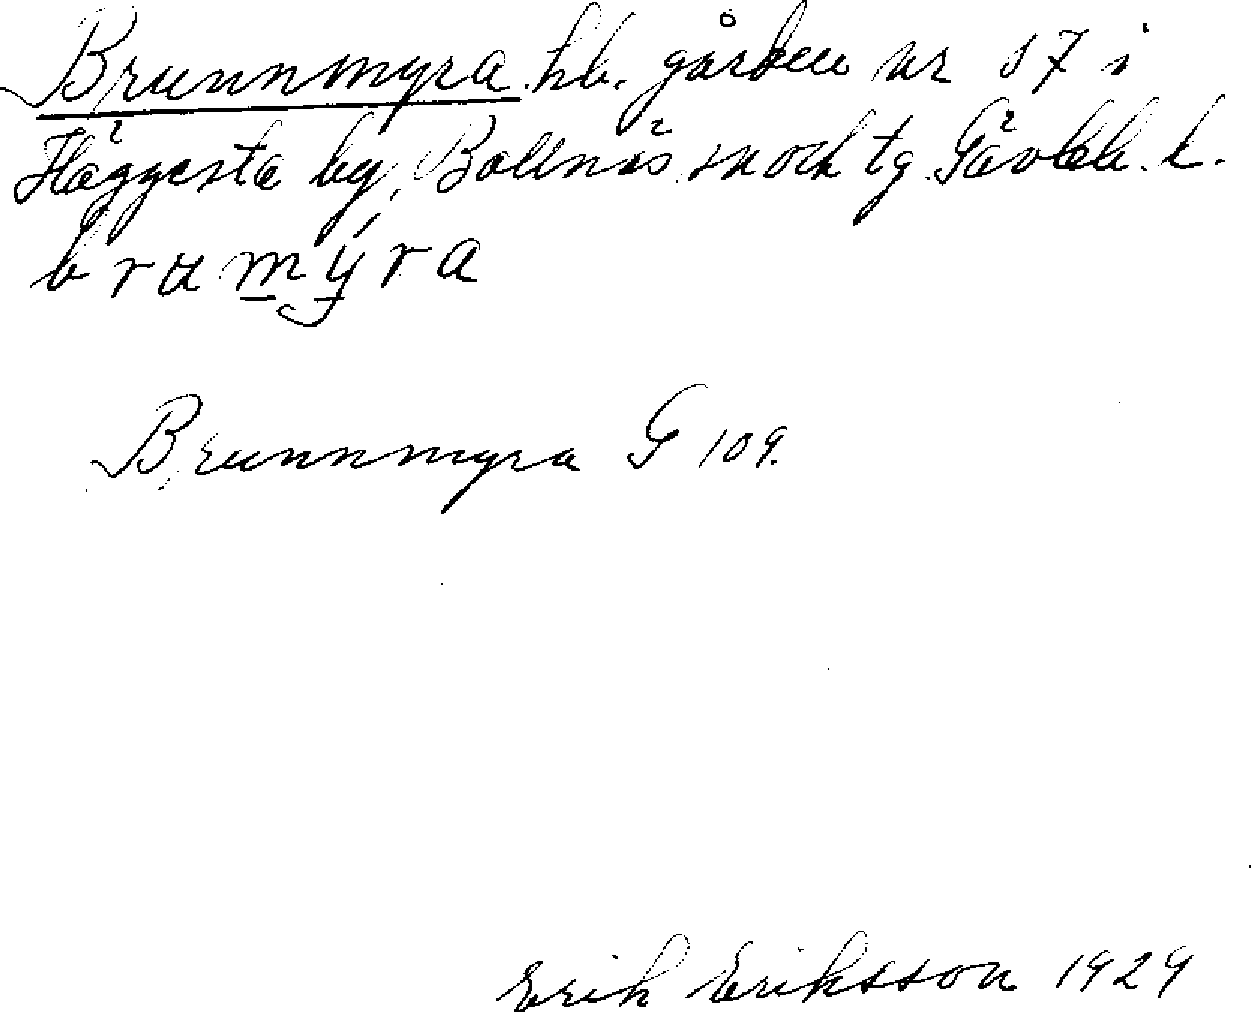 Brunnmyra hb. gården nr 17 i
Häggesta by, Bollnäs sn och tg. Gävleb. l.
brumýra
Brunnmyra G 109.
Erik Eriksson 1929